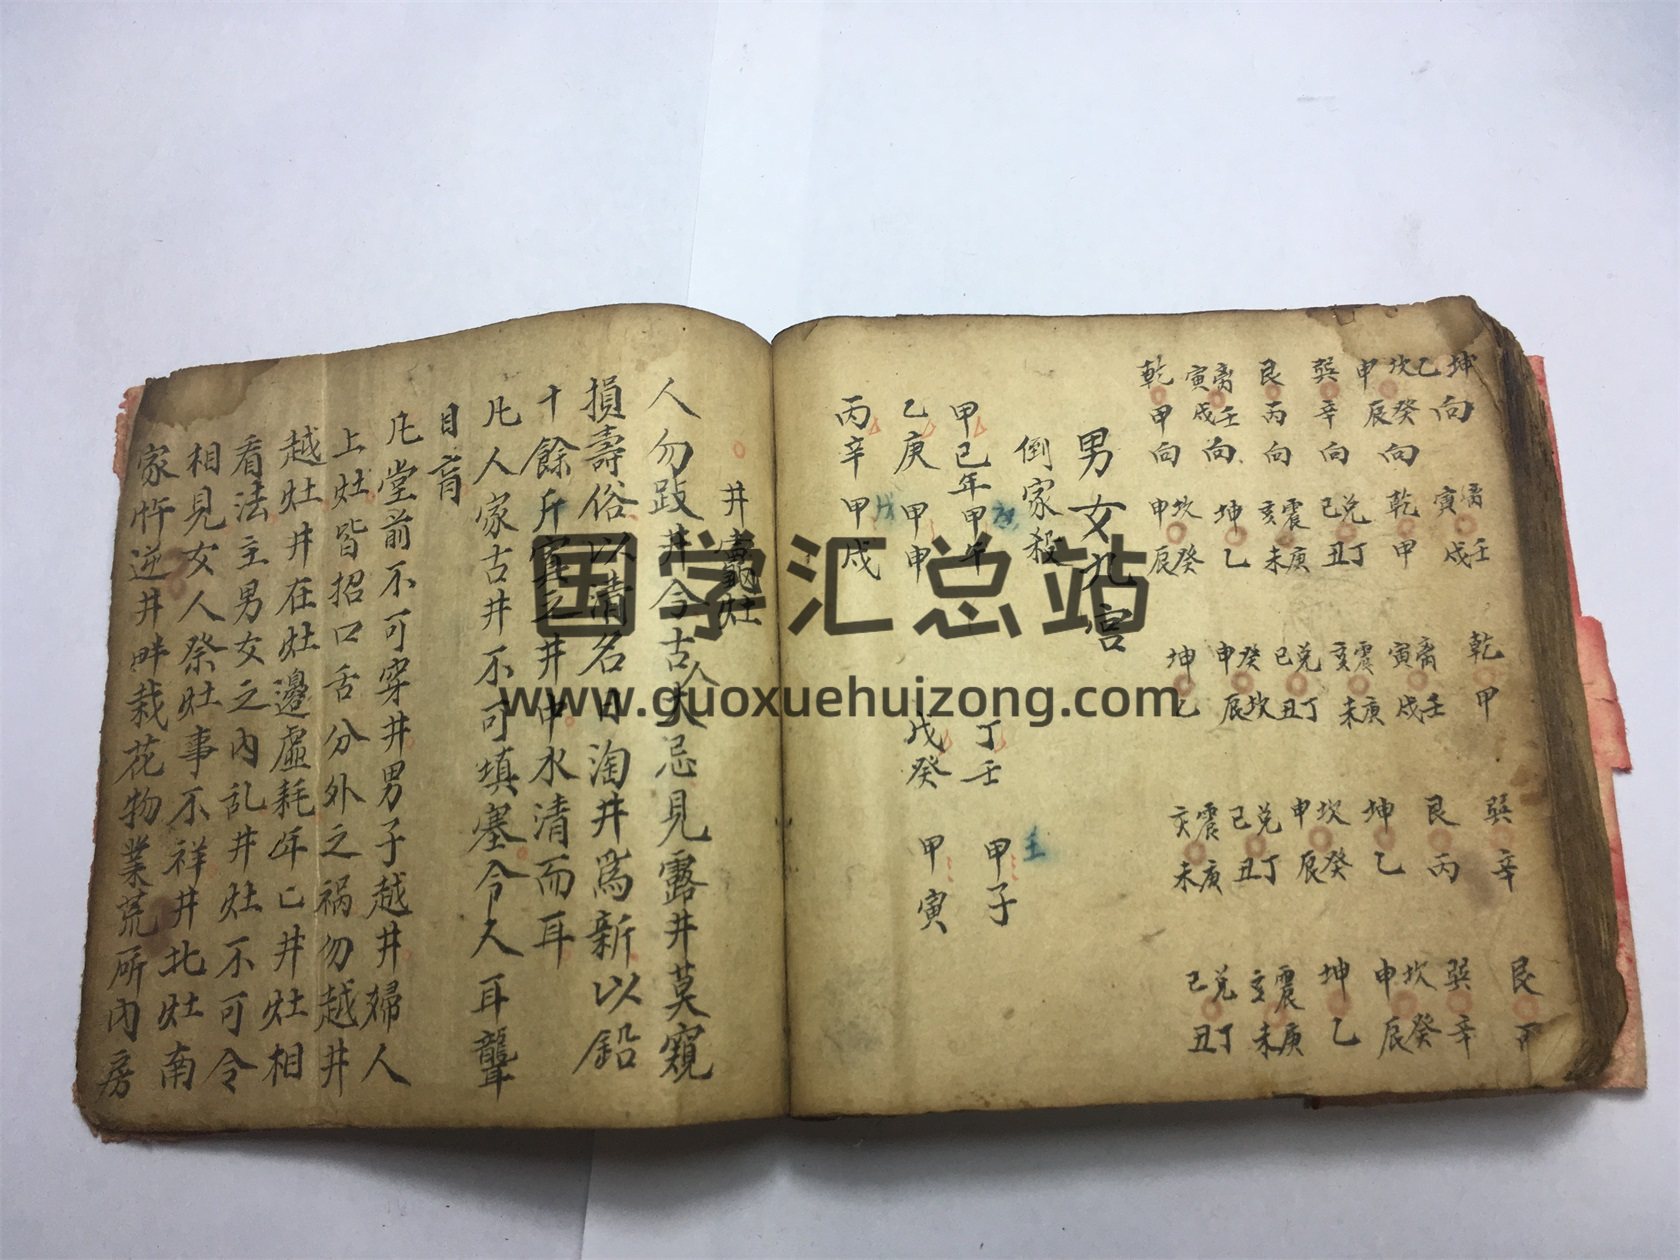 坤乙向
坎癸申辰向
巽辛向
艮丙向
离壬寅戌向
乾甲向
离壬寅戌
乾甲
兑丁巳丑
震庚亥未
坤乙
坎癸申辰
乾甲
离壬寅戌
震庚亥未
兑丁巳丑
癸坎申辰
坤乙
巽辛
艮丙
坤乙
坎癸申辰
兑丁巳丑
震庚亥未
艮丙
巽辛
坎癸申辰
坤乙
震庚亥未
兑丁巳丑
男女九宮
倒家殺
甲己年甲午 丁壬 甲子
乙庚 甲申 戊癸 甲寅
丙辛 甲戌
井竈灶
人勿跂井今古人大忌見露井莫窺
損壽俗以清名日淘井爲新以鉛
十餘斤寘之井中水清而耳
凡人家古井不可填塞令人耳聾
目盲
凡堂前不可穿井男子越井婦人
上灶皆招口舌分外之禍勿越井
越灶井在灶邊虛耗年亡井灶相
看法主男女之內乱井灶不可令
相見女人祭灶事不祥井北灶南
家忤逆井畔栽花物業荒所內房
国学汇总站
www.guoxuehuizong.com